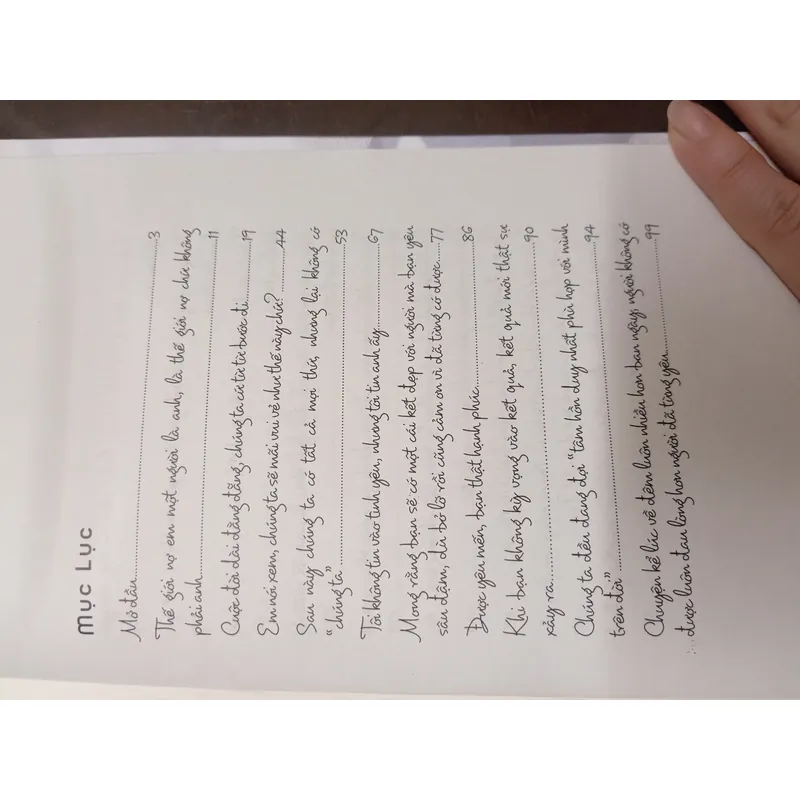 Mục Lục
Mở đầu 3
Thế giới nợ em một người là anh, là thế giới nợ chứ không
phải anh 11
Cuộc đời dài đằng đẵng, chúng ta cứ từ từ bước đi 19
Em nói xem, chúng ta sẽ mãi vui vẻ như thế này chứ? 44
Sau này chúng ta có tất cả mọi thứ, nhưng lại không có
“chúng ta” 53
Tôi không tin vào tình yêu, nhưng tôi tin anh ấy 67
Mong rằng bạn sẽ có một cái kết đẹp với người mà bạn yêu
sâu đậm, dù bỏ lỡ rồi cũng cảm ơn vì đã từng có được 77
Được yêu mến, bạn thật hạnh phúc 86
Khi bạn không kỳ vọng vào kết quả, kết quả mới thật sự
xảy ra 90
Chúng ta đều đang đợi “tâm hồn duy nhất phù hợp với mình
trên đời” 94
Chuyện kể lúc về đêm luôn nhiều hơn ban ngày; người không có
được luôn đau lòng hơn người đã từng yêu 99